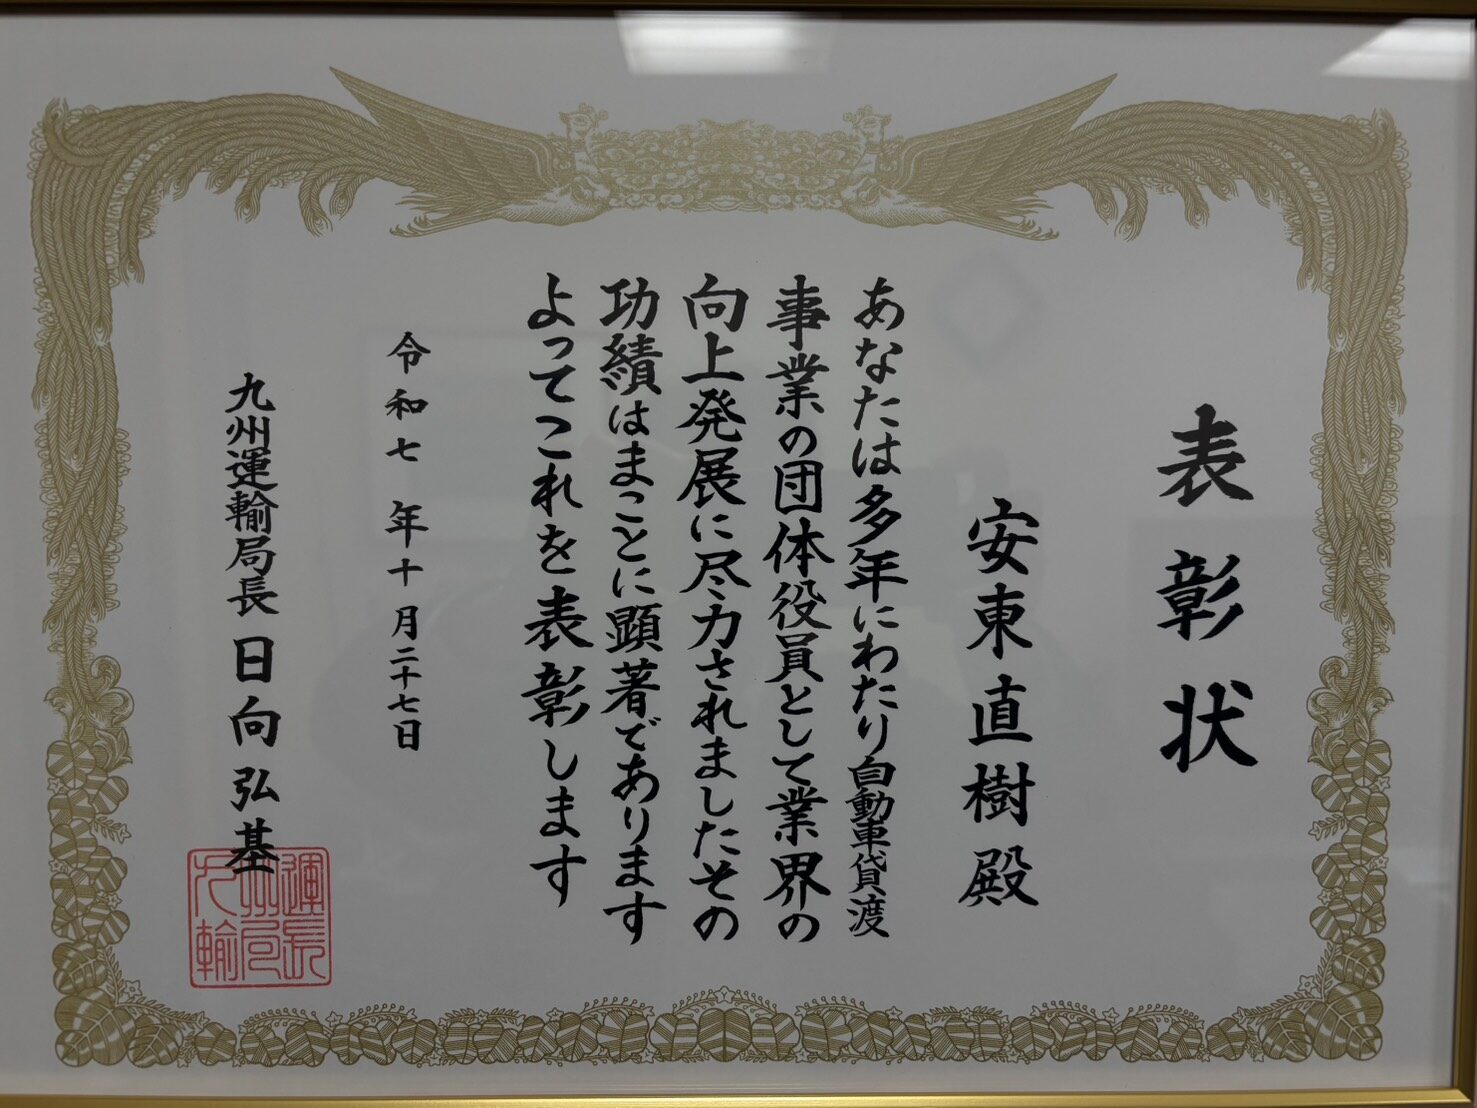 表彰状
安東直樹殿
あなたは多年にわたり自動車貸渡
事業の団体役員として業界の
向上発展に尽力されましたその
功績はまことに顕著であります
よってこれを表彰します
令和七年十月二十七日
九州運輸局長 日向弘基